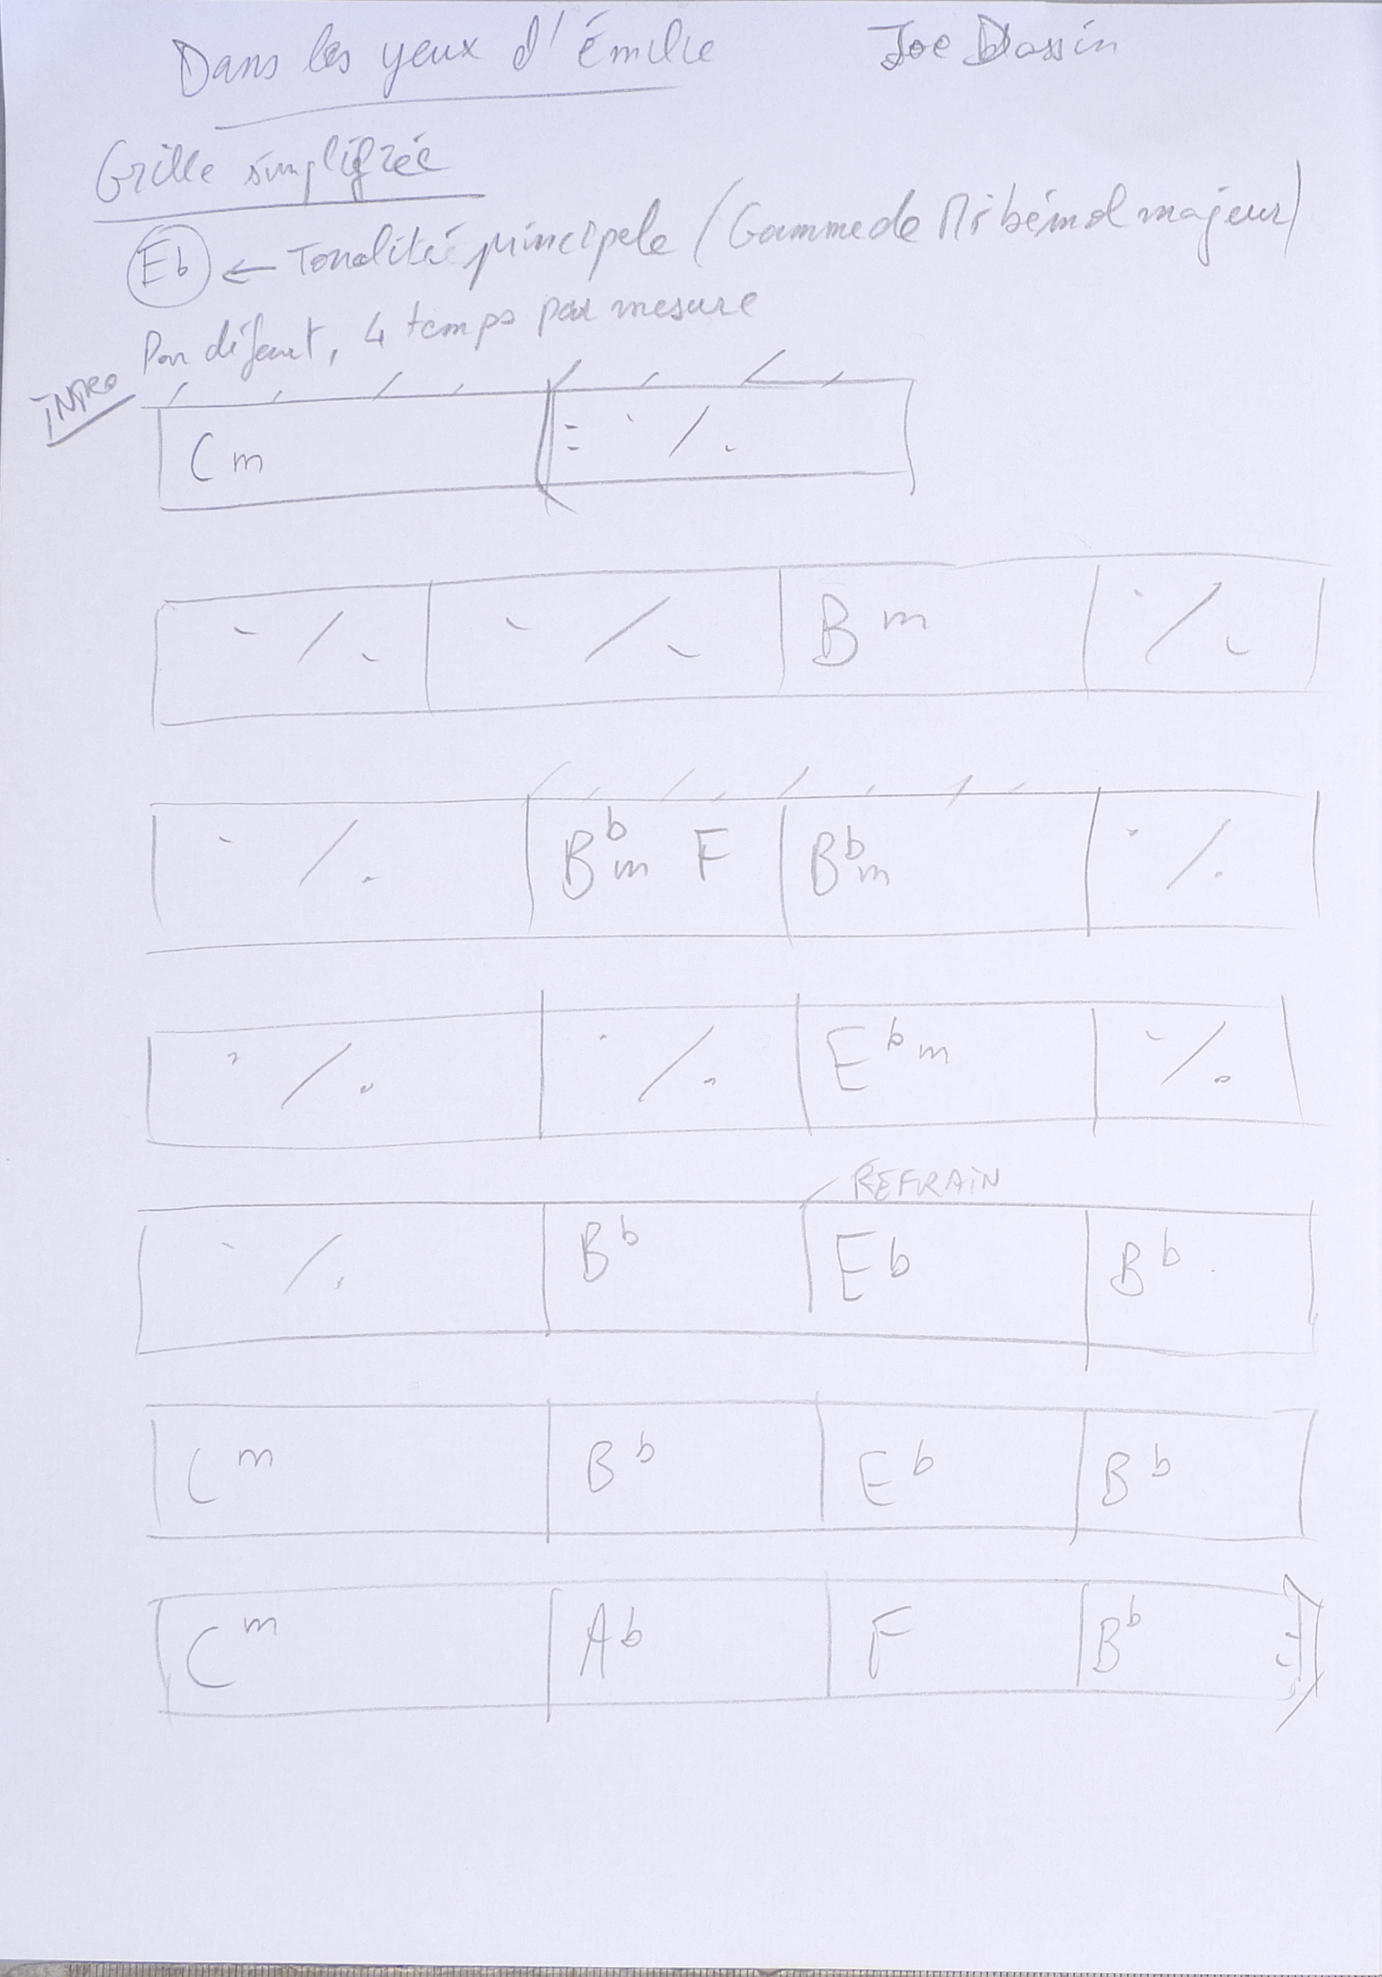 Dans les yeux d'Émilie Joe Dassin
Grille simplifiée
Eb ← Tonalité principale (Gamme de Mi bémol majeur)
Par défaut, 4 temps par mesure
INTRO
Cm | : ٪
٪ | ٪ | Bm | ٪
٪ | Bbm F | Bbm | ٪
٪ | ٪ | Ebm | ٪
REFRAIN
٪ | Bb | Eb | Bb
Cm | Bb | Eb | Bb
Cm | Ab | F | Bb :|